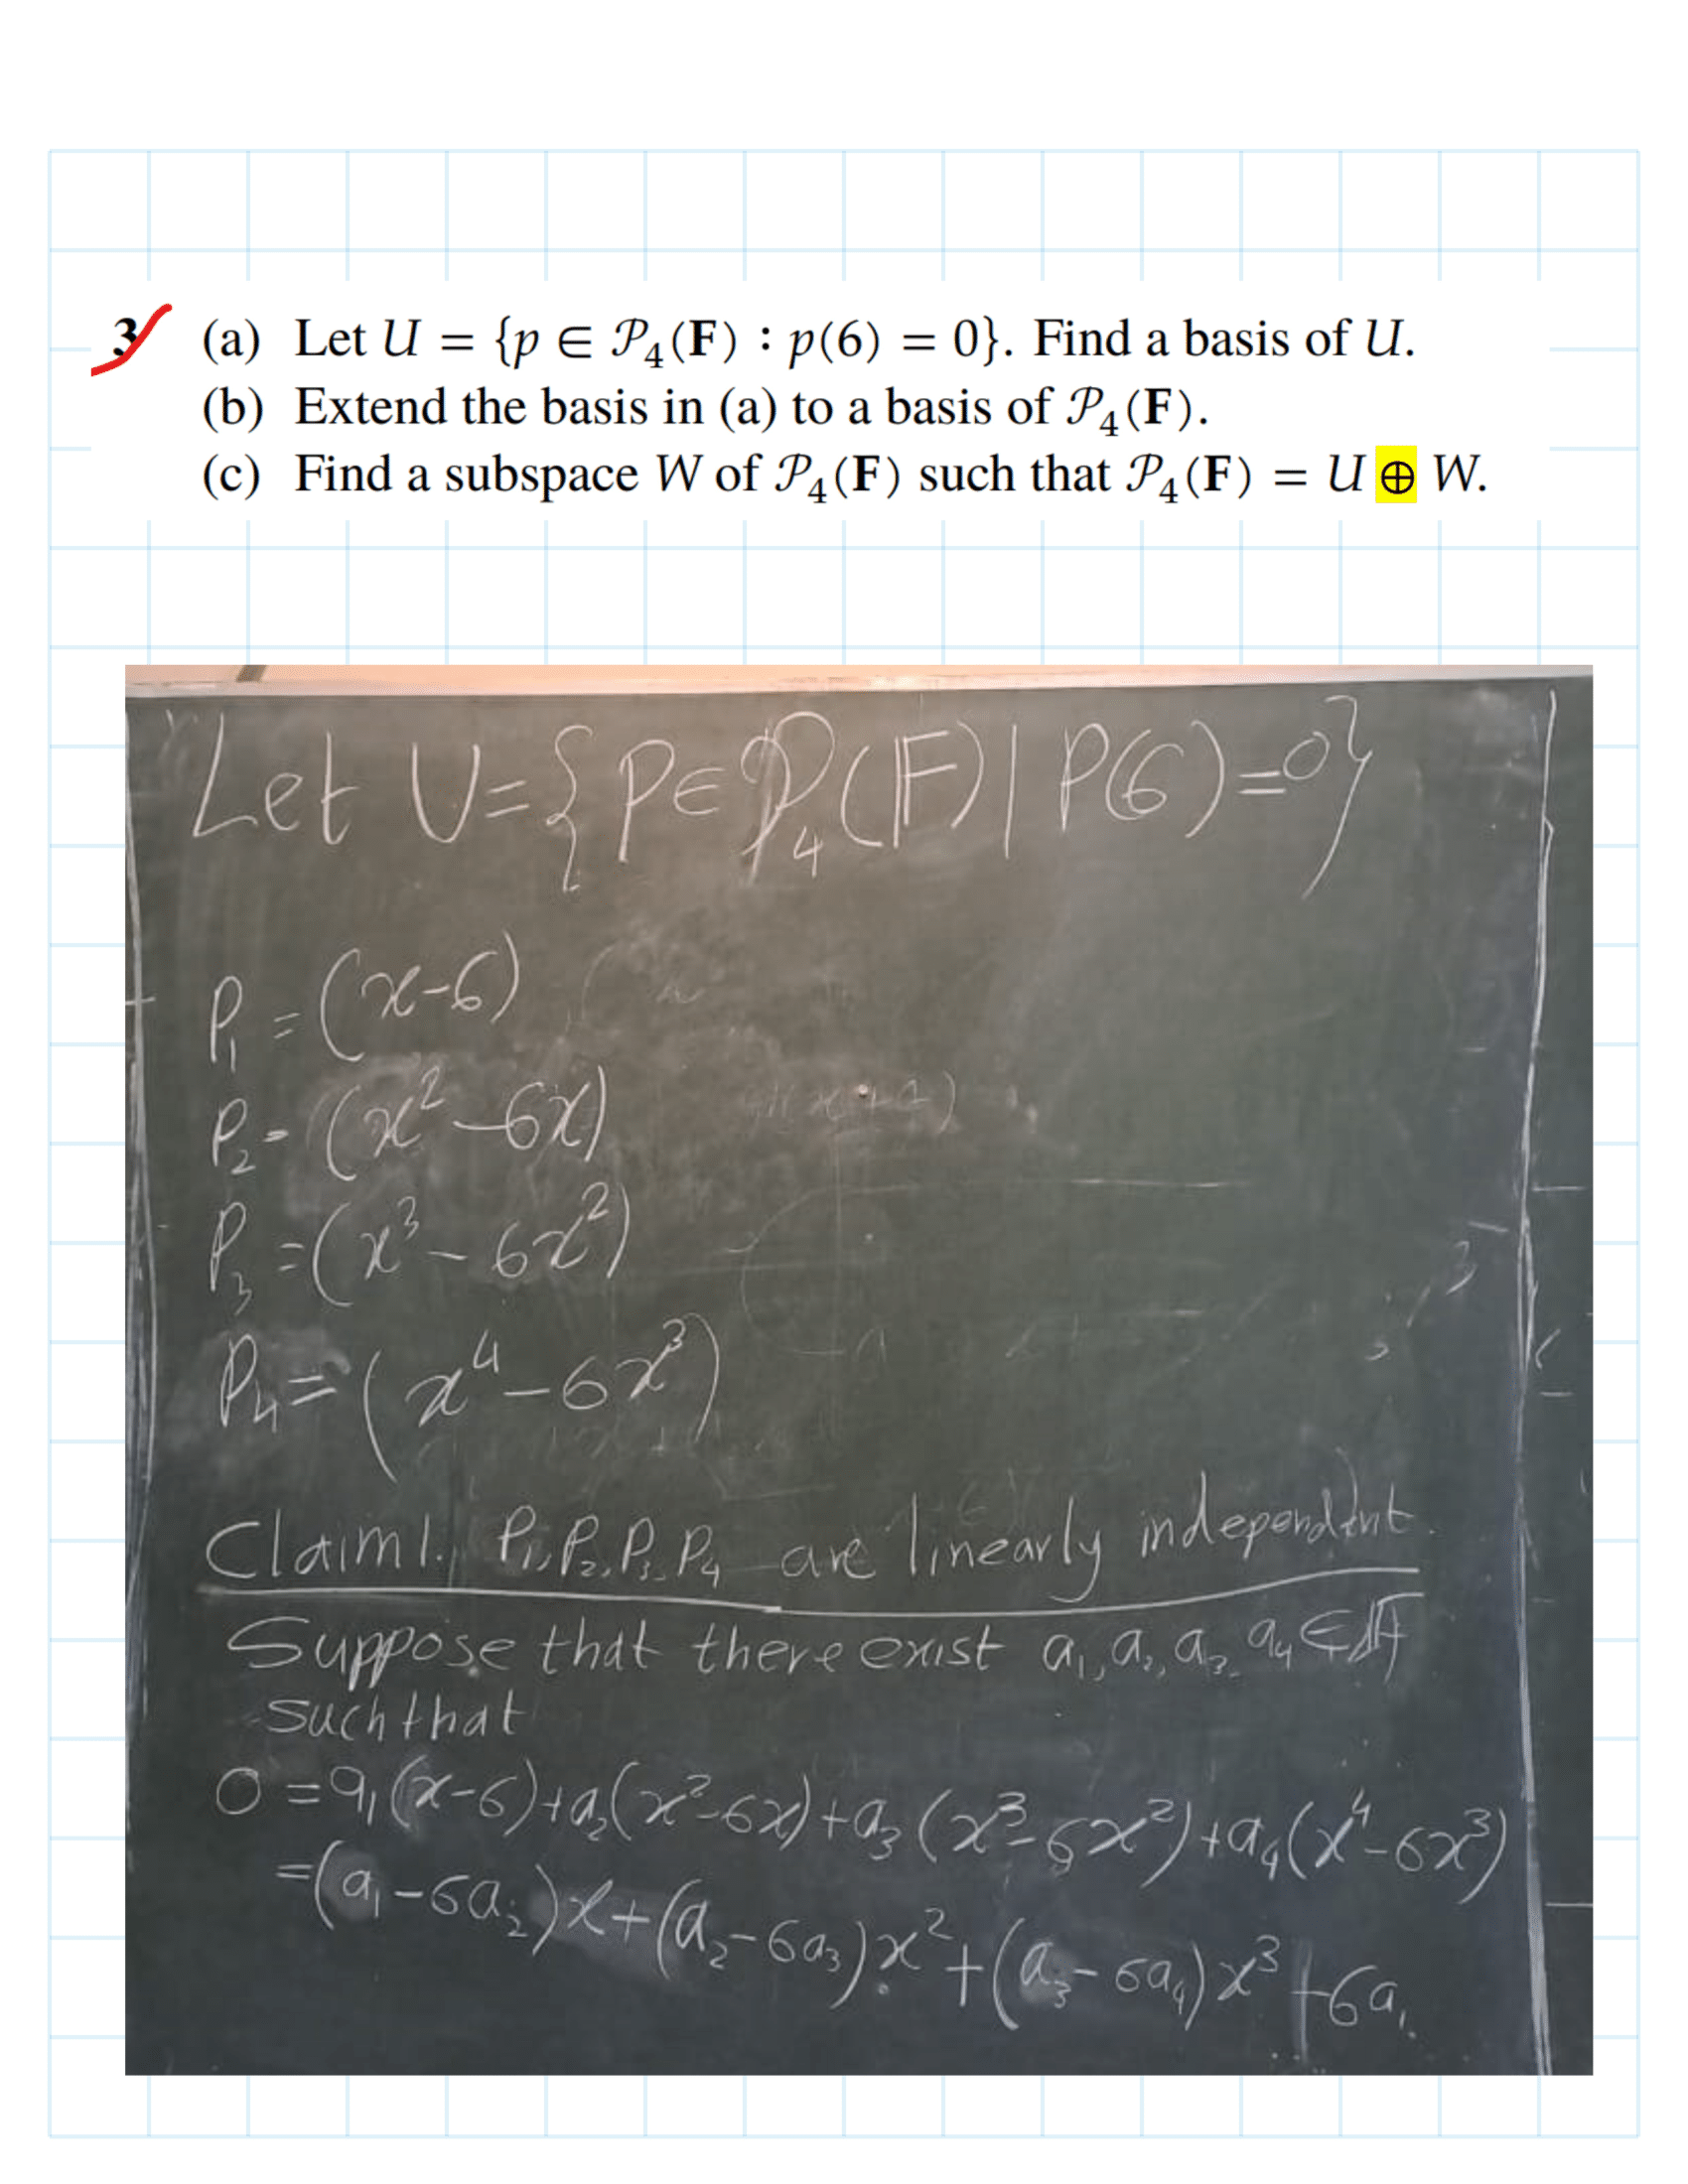 3 (a) Let U = {p ∈ 𝒫₄(F) : p(6) = 0}. Find a basis of U.
(b) Extend the basis in (a) to a basis of 𝒫₄(F).
(c) Find a subspace W of 𝒫₄(F) such that 𝒫₄(F) = U ⊕ W.
Let U={P∈𝒫₄(𝔽)| P(6)=0}
P₁ = (x-6)
P₂ = (x²-6x)
P₃ = (x³-6x²)
P₄ = (x⁴-6x³)
Claim1. P₁, P₂, P₃, P₄ are linearly independent.
Suppose that there exist a₁, a₂, a₃, a₄ ∈ 𝔽
such that
0 = a₁(x-6)+a₂(x²-6x)+a₃(x³-6x²)+a₄(x⁴-6x³)
=(a₁-6a₂)x+(a₂-6a₃)x²+(a₃-6a₄)x³+6a₁.